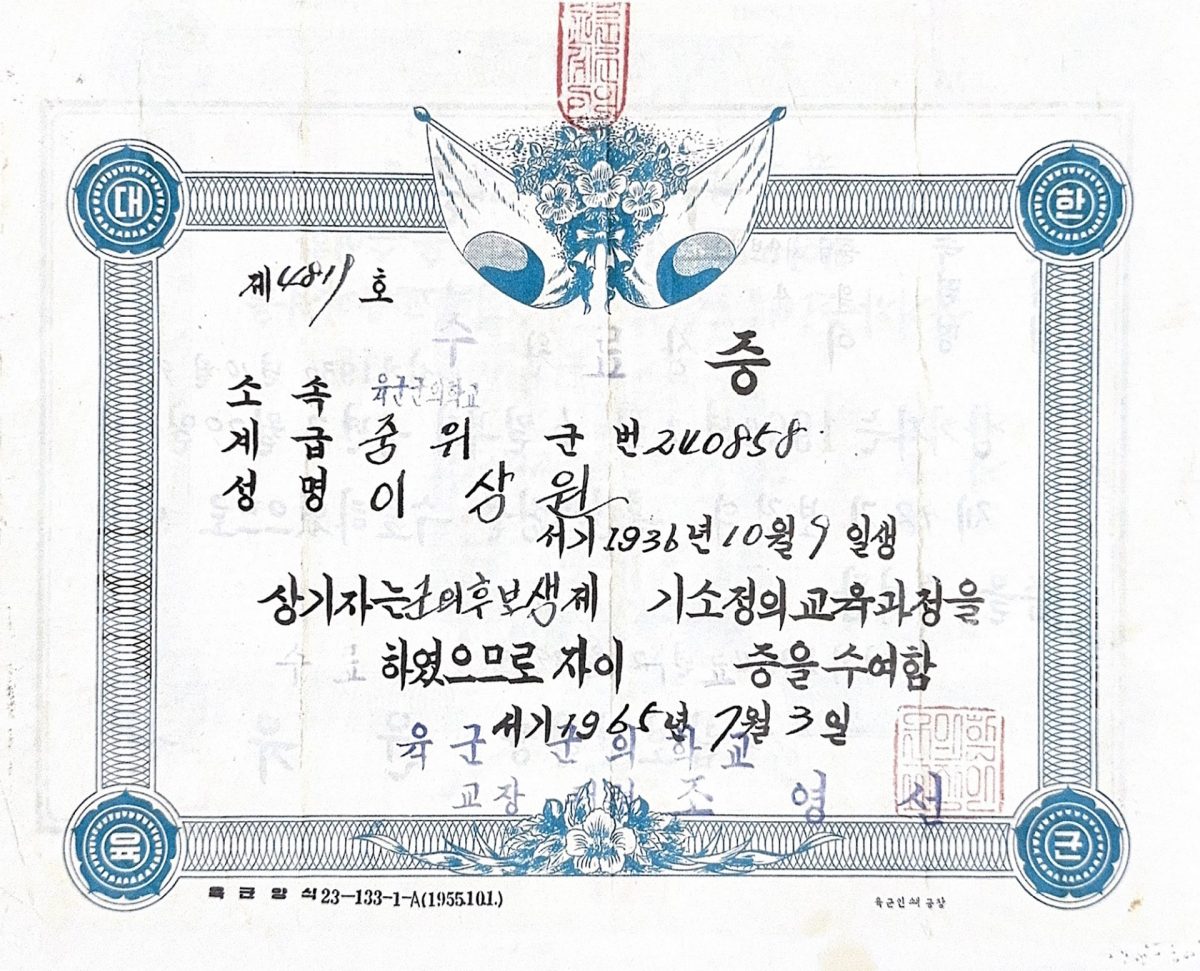 대 한
제4819호
증
소속 육군군의학교
계급 중위 군번 240858
성명 이상원
서기 1936년 10월 9일생
상기자는 군의후보생 제 기 소정의 교육과정을
하였으므로 자이 증을 수여함
서기 1965년 7월 3일
육군군의학교
교장 조영선
육 군
육군양식 23-133-1-A(1955.10.1.)
육군인쇄공창